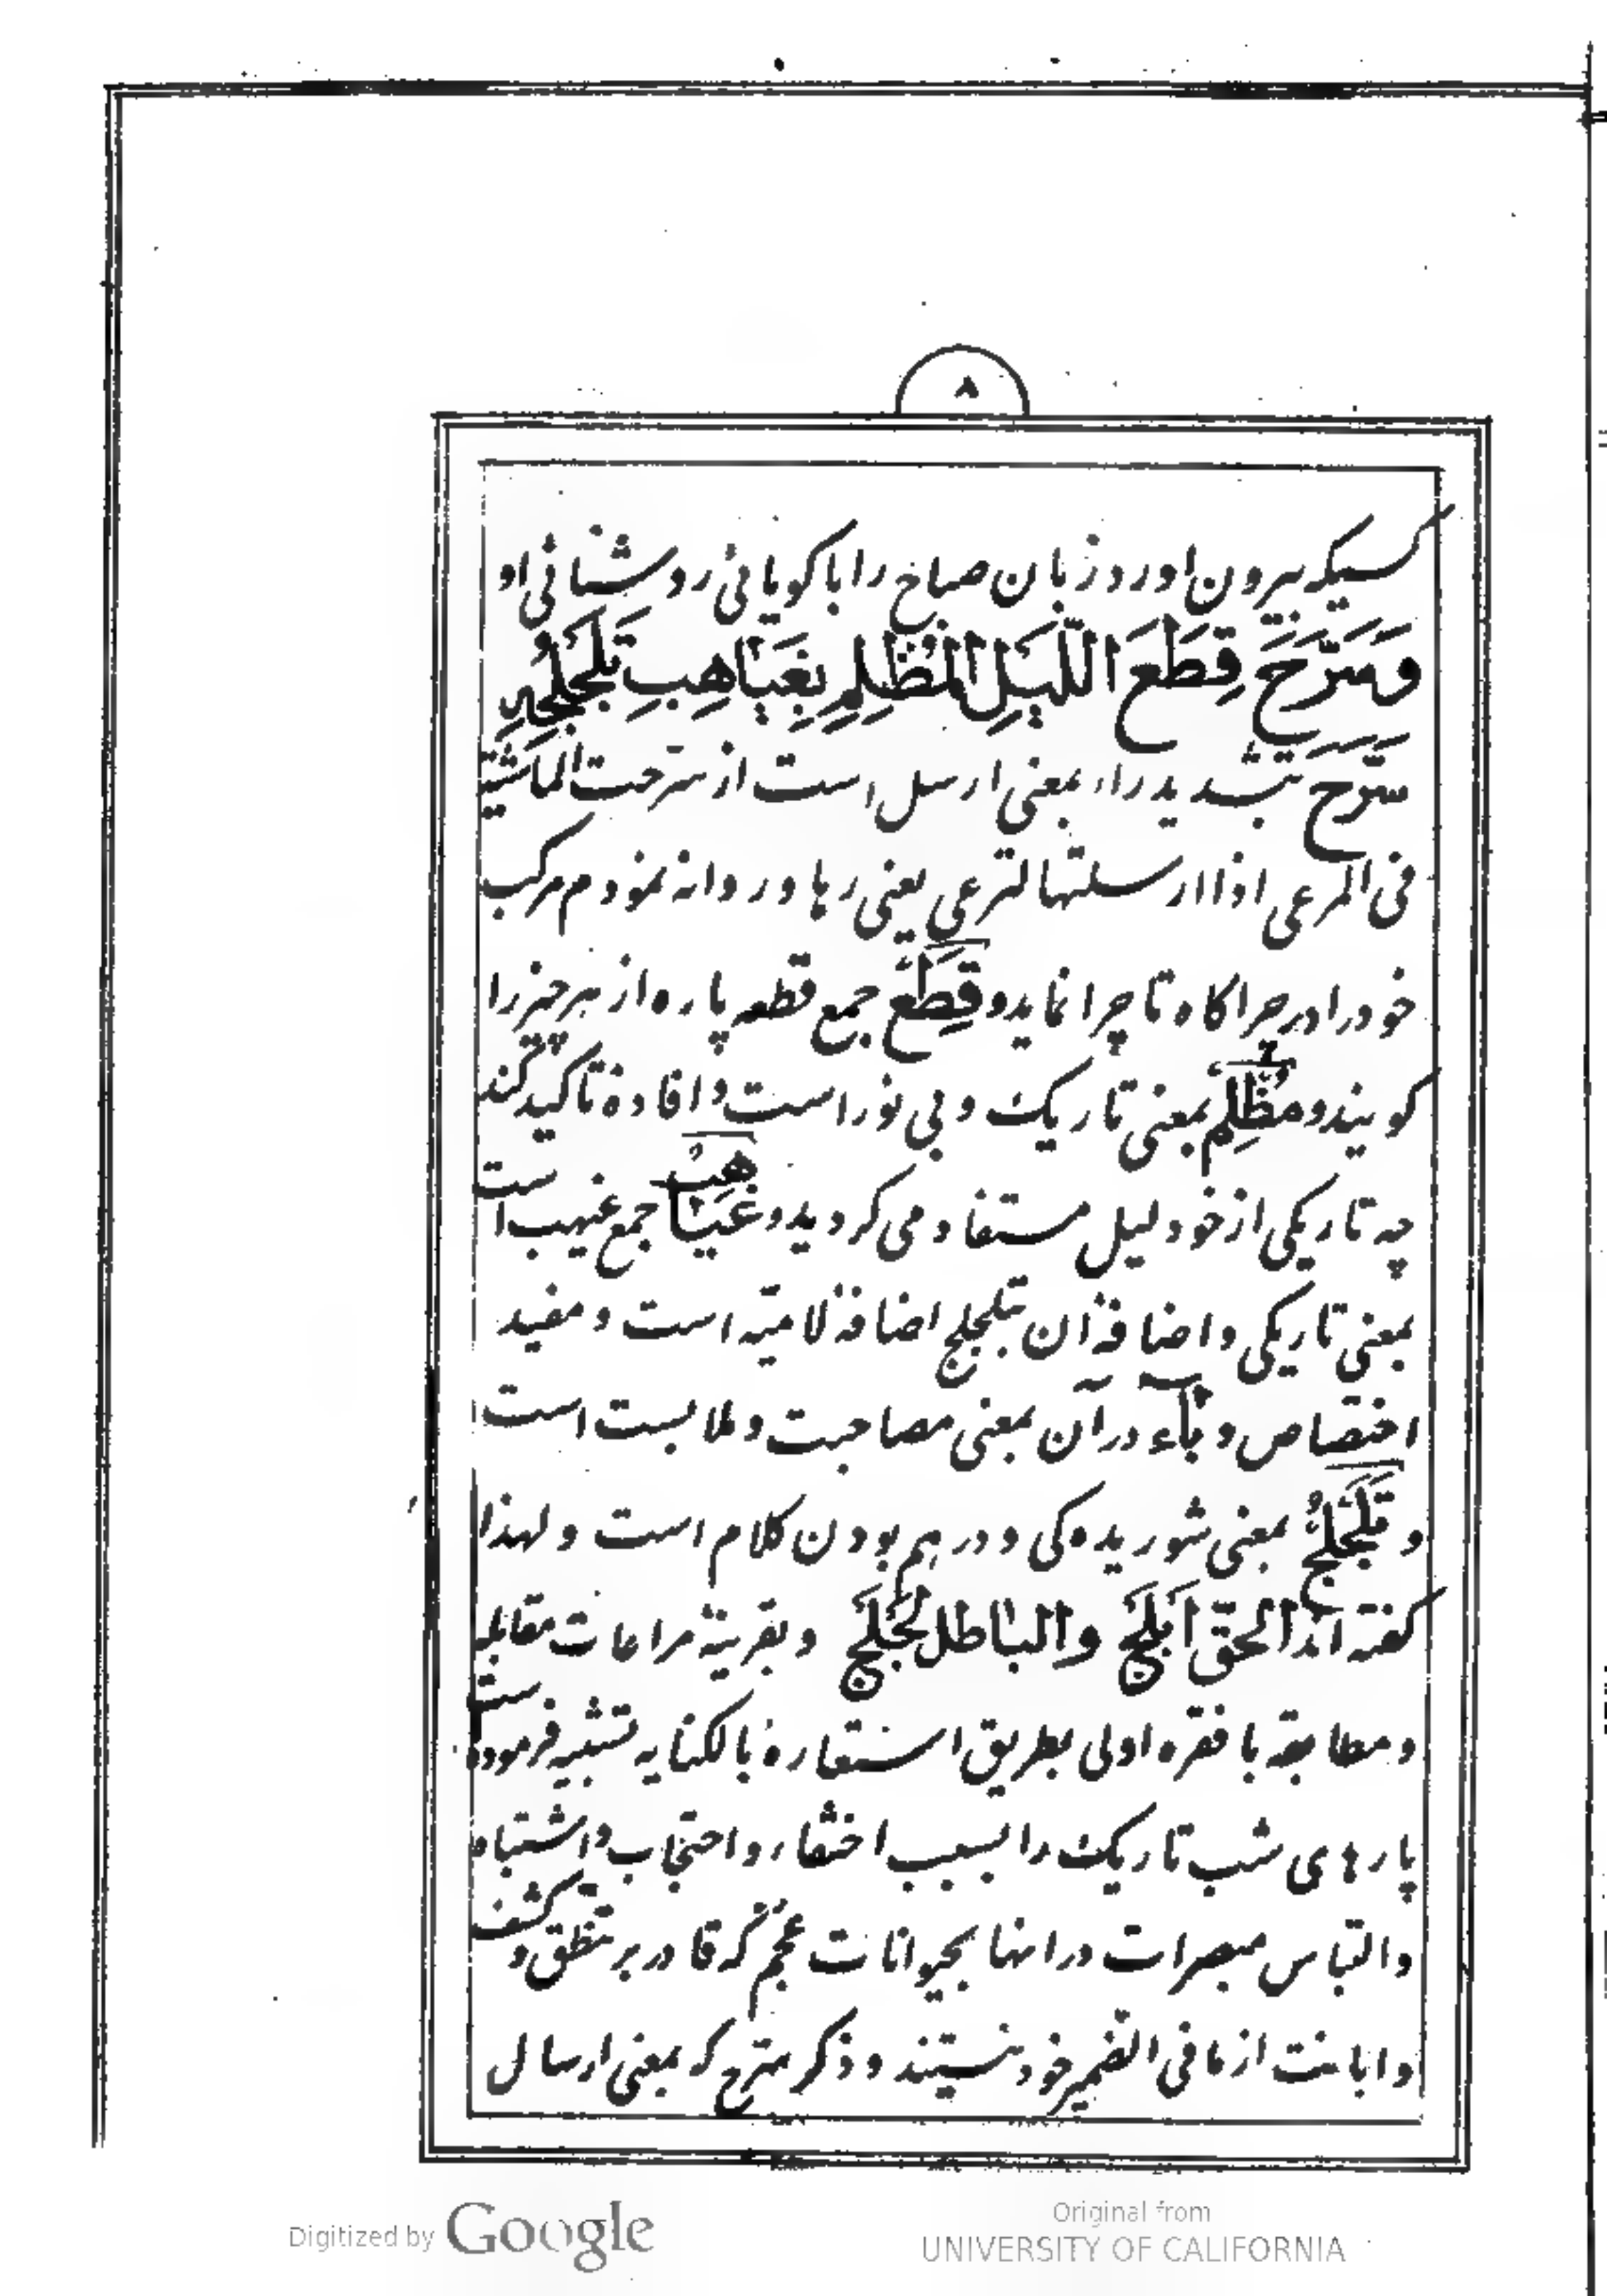 ۸
کسیکه بیرون اورد زبان صباح را با کویائی روشنائی او
وَسَرَّحَ قِطَعَ اللَّیْلِ الْمُظْلِمِ بِغَیَاهِبِ تَلَجْلُجِهِ
سَرَّحَ بتشدید راء بمعنی ارسل است از سرّحت الماشیة
فی المرعی اذا ارسلتها لترعی یعنی رها و روانه نمودم مرکب
خود را در چراکاه تا چرا نماید و قِطَع جمع قطعه پاره از هر چیز را
کویند و مُظْلِم بمعنی تاریک و بی نور است و افاده تاکید کند
چه تاریکی از خود لیل مستفاد می کردید و غَیَاهِب جمع غیهب است
بمعنی تاریکی و اضافۀ ان بتلجلج اضافۀ لامیّه است و مفید
اختصاص و باء در آن بمعنی مصاحبت و ملابست است
و تَلَجْلُج بمعنی شوریده کی و در هم بودن کلام است و لهذا
کفته اند الحقّ اَبْلَج والباطل لَجْلَج و بقرینۀ مراعات مقابله
و مطابقه با فقره اولی بطریق استعارۀ بالکنایه تشبیه فرموده است
پارهای شب تاریک را بسبب اختفاء و احتجاب و اشتباه
والتباس مبصرات در انها بحیوانات عجم که قادر بر تنطّق و کشف
و ابانت از ما فی الضمیر خود نیستند و ذکر سرّح که بمعنی ارسال
Digitized by Google
Original from
UNIVERSITY OF CALIFORNIA